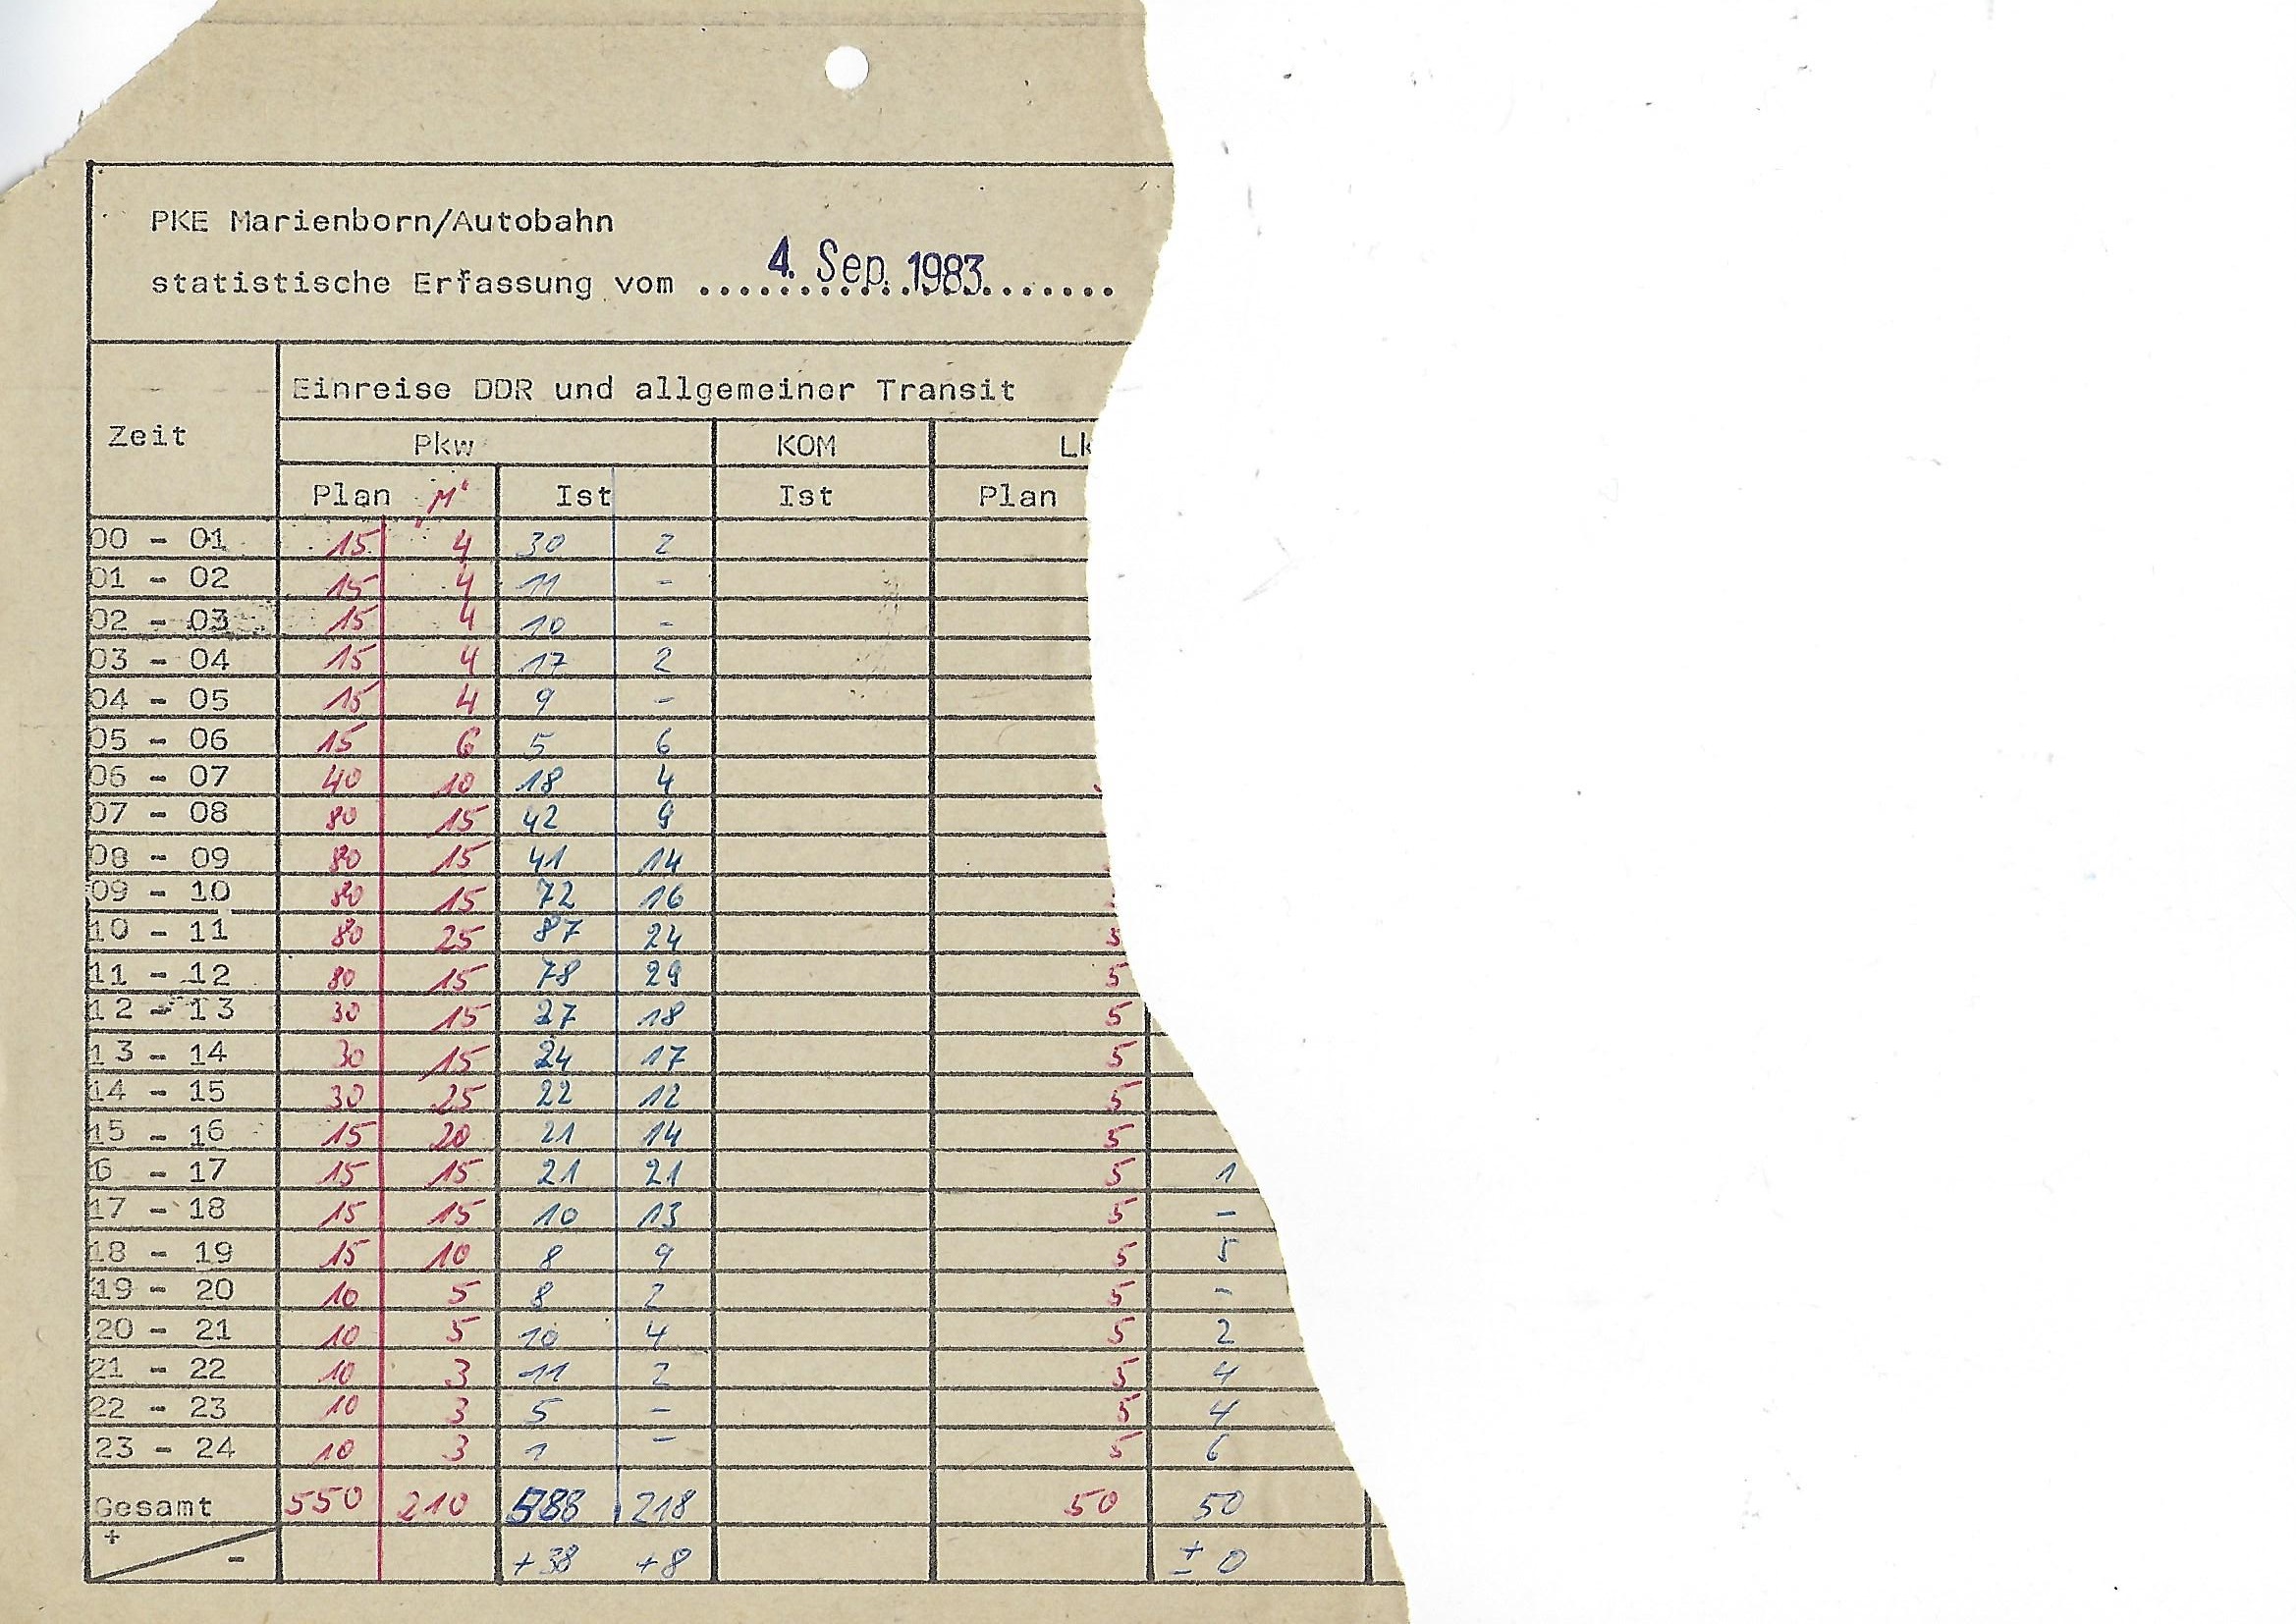 PKE Marienborn/Autobahn
statistische Erfassung vom 4. Sep. 1983
Einreise DDR und allgemeiner Transit
Zeit
Pkw KOM
Plan M' Ist Ist Plan
00 - 01 15 4 30 2
01 - 02 15 4 11 -
02 - 03 15 4 10 -
03 - 04 15 4 17 2
04 - 05 15 4 9 -
05 - 06 15 6 5 6
06 - 07 40 10 18 4
07 - 08 80 15 42 9
08 - 09 80 15 41 14
09 - 10 80 15 72 16
10 - 11 80 25 87 24 5
11 - 12 80 15 78 29 5
12 - 13 30 15 27 18 5
13 - 14 30 15 24 17 5
14 - 15 30 25 22 12 5
15 - 16 15 20 21 14 5
6 - 17 15 15 21 21 5 1
17 - 18 15 15 10 13 5 -
18 - 19 15 10 8 9 5 5
19 - 20 10 5 8 2 5 -
20 - 21 10 5 10 4 5 2
21 - 22 10 3 11 2 5 4
22 - 23 10 3 5 - 5 4
23 - 24 10 3 1 - 5 6
Gesamt 550 210 588 218 50 50
+ - +38 +8 ± 0